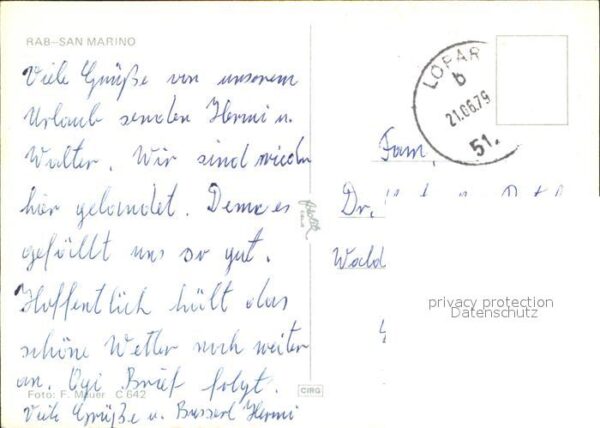 RAB–SAN MARINO
Viele Grüße von unserem
Urlaub senden Hermi u.
Walter. Wir sind wieder
hier gelandet. Denn es
gefällt uns so gut.
Hoffentlich hält das
schöne Wetter noch weiter
an. Brief folgt.
Foto: F. Mauer C 642
Viele Grüße u. Busserl Hermi
CIRG
LOPAR
b
21.06.79
51.
Fam.
Dr.
Wald
privacy protection
Datenschutz